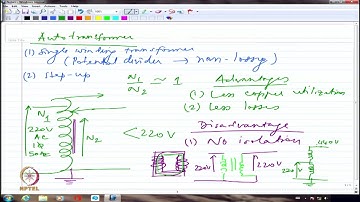 Autotransformer
(1) Single winding transformer
(Potential divider → non-lossy)
(2) Step-up N1/N2 ≈ 1
Advantages
(1) Less copper utilization
(2) Less losses
Disadvantage
(1) No isolation
N1
220V
AC
1φ
50Hz
N2
< 220V
220V
220V
440V
220V
NPTEL